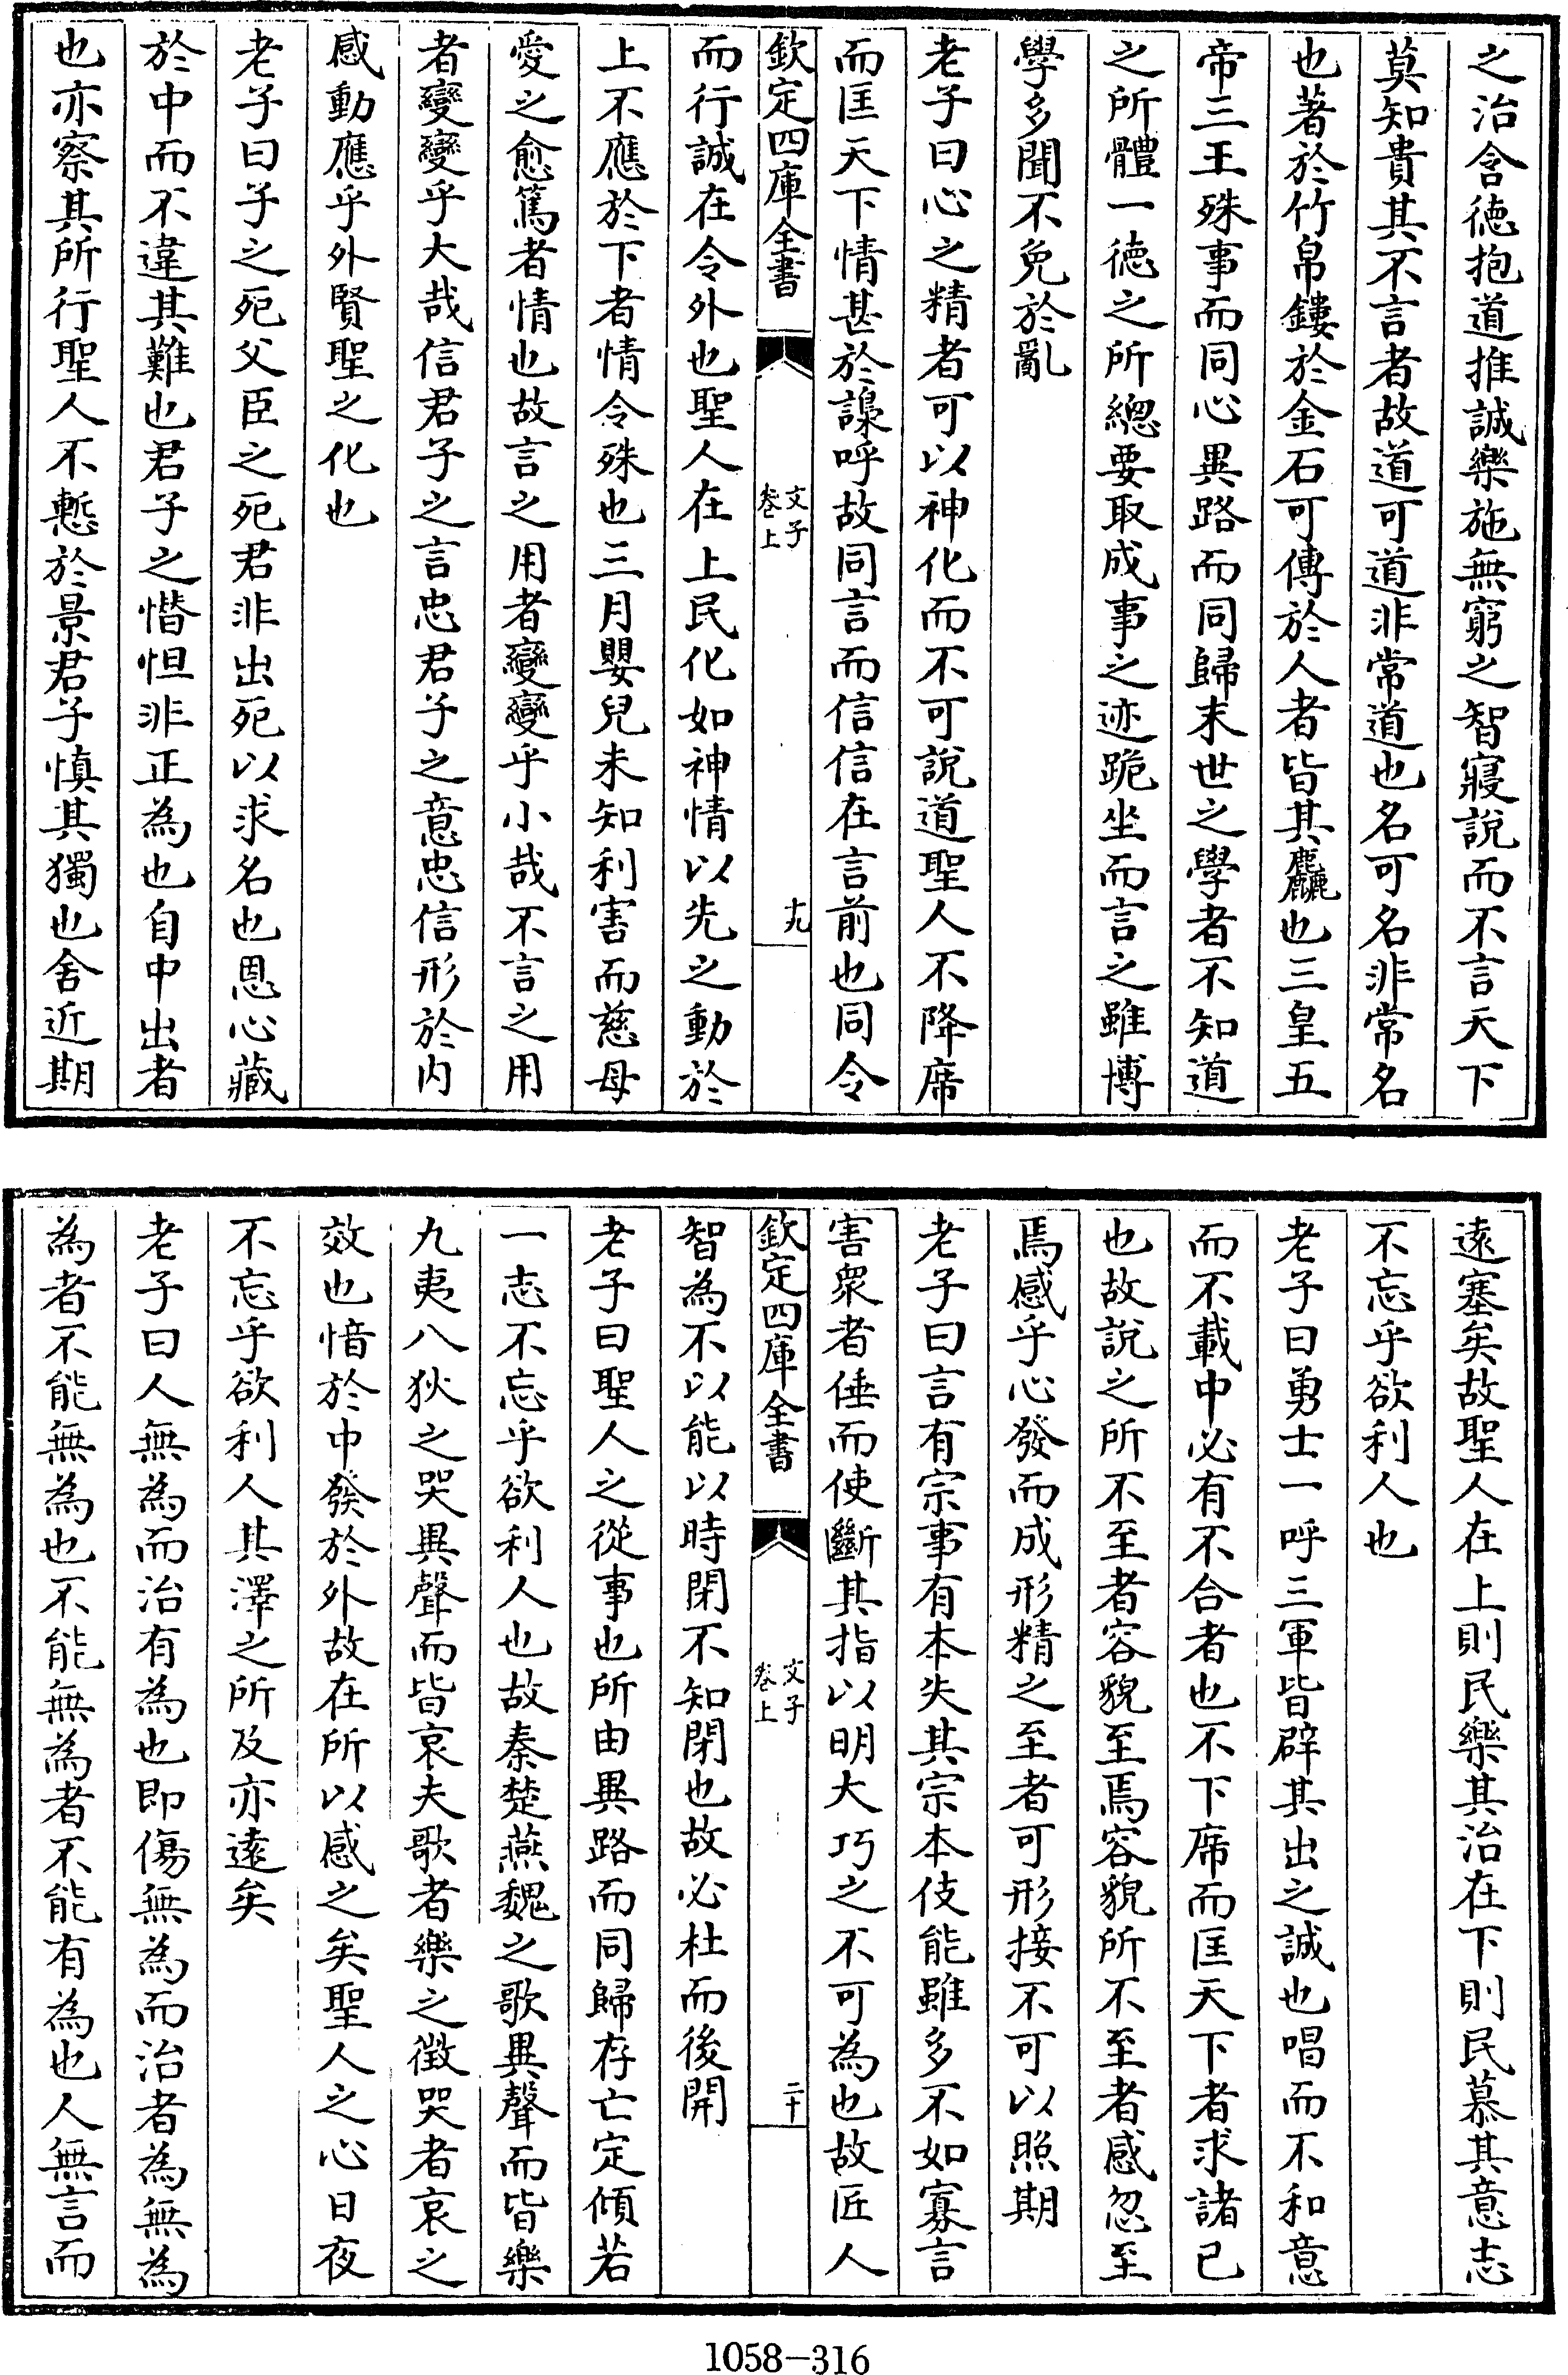 之治含徳抱道推誠樂施無窮之智寢說而不言天下
莫知貴其不言者故道可道非常道也名可名非常名
也著於竹帛鏤於金石可傳於人者皆其麤也三皇五
帝三王殊事而同心異路而同歸末世之學者不知道
之所體一徳之所總要取成事之迹跪坐而言之雖博
學多聞不免於亂
老子曰心之精者可以神化而不可說道聖人不降席
而匡天下情甚於譟呼故同言而信信在言前也同令
欽定四庫全書
文子
卷上
十九
而行誠在令外也聖人在上民化如神情以先之動於
上不應於下者情令殊也三月嬰兒未知利害而慈母
愛之愈篤者情也故言之用者變變乎小哉不言之用
者變變乎大哉信君子之言忠君子之意忠信形於内
感動應乎外賢聖之化也
老子曰子之死父臣之死君非出死以求名也恩心藏
於中而不違其難也君子之憯怛非正為也自中出者
也亦察其所行聖人不慙於景君子慎其獨也舍近期
遠塞矣故聖人在上則民樂其治在下則民慕其意志
不忘乎欲利人也
老子曰勇士一呼三軍皆辟其出之誠也唱而不和意
而不載中必有不合者也不下席而匡天下者求諸已
也故說之所不至者容貌至焉容貌所不至者感忽至
焉感乎心發而成形精之至者可形接不可以照期
老子曰言有宗事有本失其宗本伎能雖多不如寡言
害衆者倕而使斷其指以明大巧之不可為也故匠人
欽定四庫全書
文子
卷上
二十
智為不以能以時閉不知閉也故必杜而後開
老子曰聖人之從事也所由異路而同歸存亡定傾若
一志不忘乎欲利人也故秦楚燕魏之歌異聲而皆樂
九夷八狄之哭異聲而皆哀夫歌者樂之徴哭者哀之
效也愔於中發於外故在所以感之矣聖人之心日夜
不忘乎欲利人其澤之所及亦遠矣
老子曰人無為而治有為也即傷無為而治者為無為
為者不能無為也不能無為者不能有為也人無言而
1058-316